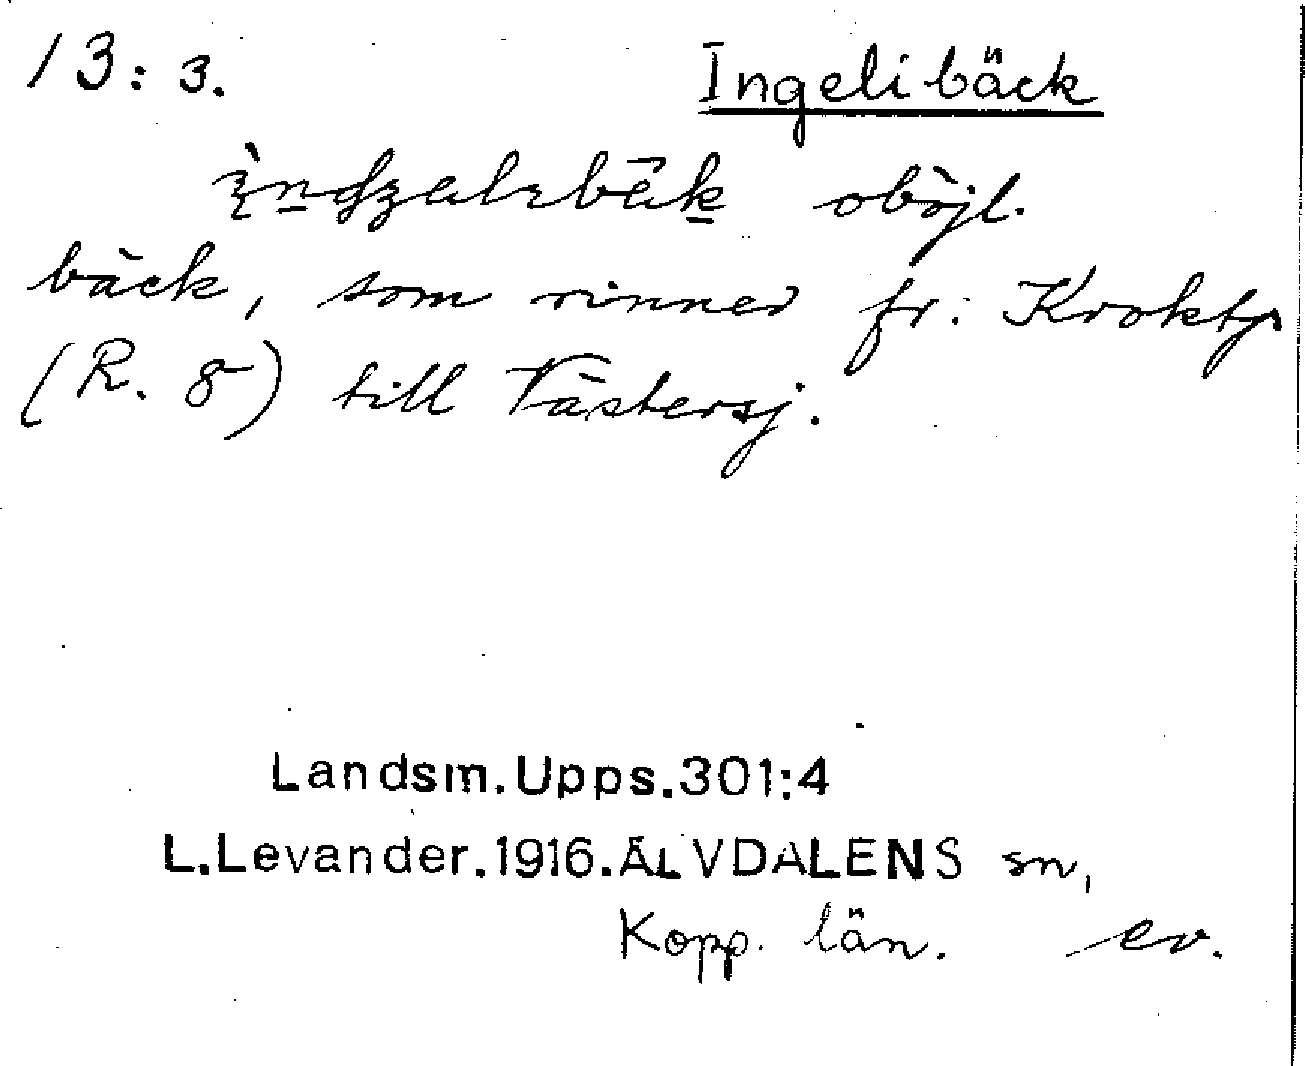 13: 3.
Ingelibäck
ìndzelɪbǟk oböjl.
bäck, som rinner fr. Kroktj.
(R. 8) till Västersj.
Landsm.Upps.301:4
L.Levander.1916.ÄLVDALENS sn,
Kopp. län. ev.